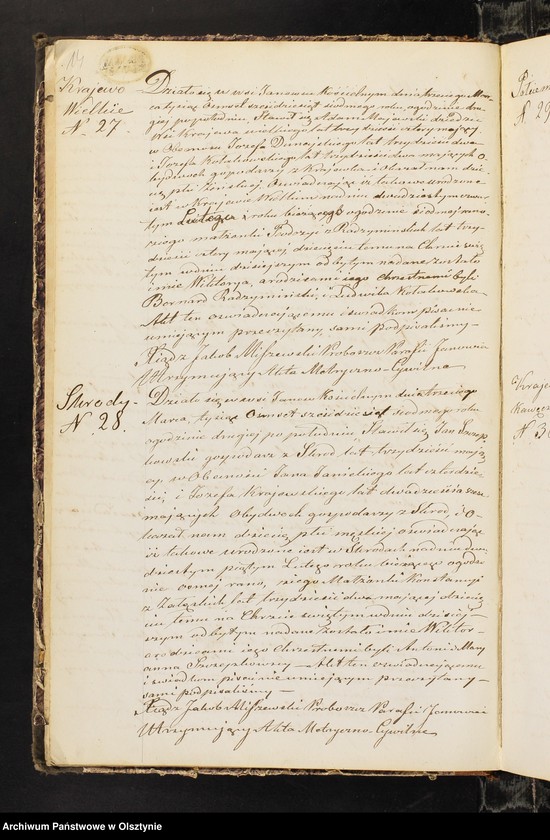 Krajewo
Wielkie
N. 27.
Działo się w wsi Janowcu Kościelnym dnia trzeciego Mar-
ca tysiąc ośmset sześćdziesiąt siódmego roku, o godzinie dru-
giej popołudniu, Stawił się Adam Majewski dziedzic
wsi Krajewa wielkiego lat trzydzieści cztery mający
w Obecności Józefa Dunajskiego lat trzydzieści dwa
i Józefa Kołakowskiego lat trzydzieści dwa mających O-
bydwóch gospodarzy z Krajewka i okazał nam dzie-
cię płci żeńskiej, Oświadczając iż takowe urodzone
jest w Krajewie Wielkim na dniu dwudziestym
tym Lutego i roku bieżącego o godzinie siódmej
z jego małżonki z Radzymińskich lat trzy-
dzieści cztery mającej dziecięciu temu na Chrzcie świę-
tym w dniu dzisiejszym odbytym nadane zostało
imie Wiktorya, a rodzicami jego chrzestnemi byli
Bernard Radzymiński, i Ludwika Kołakowska
Akt ten oświadczającemu i świadkom pisać nie-
umiejącym przeczytany sami podpisaliśmy —
Xiądz Jakób Miszewski Proboszcz Parafii Janowiec
Utrzymujący Akta Metryczno-Cywilne
Skrody.
N. 28.
Działo się w wsi Janowcu Kościelnym dnia trzeciego
Marca, tysiąc ośmset sześćdziesiąt siódmego roku
o godzinie drugiej po południu, Stawił się Jan
gospodarz z Skrod lat trzydzieści mają-
cy, w Obecności Jana Janickiego lat czterdzie-
ści, i Józefa Krajewskiego lat dwadzieścia
mających Obydwóch gospodarzy z Skrod, i O-
kazał nam dziecię płci męskiej oświadczając
iż takowe urodzone jest w Skrodach na dniu dwu-
dziestym piątym Lutego roku bieżącego o godzi-
nie ósmej rano, z jego Małżonki Konstancyi
z Załęskich, lat trzydzieści dwa mającej dziecię-
ciu temu na Chrzcie świętym w dniu dzisiej-
szym odbytym nadane zostało imie Wiktor
a rodzicami jego Chrzestnemi byli Antoni i Mary-
anna — Akt ten oświadczającemu
i świadkom pisać nie umiejącym przeczytany —
sami podpisaliśmy —
Xiądz Jakób Miszewski Proboszcz Parafii Janowiec
Utrzymujący Akta Metryczno-Cywilne
Archiwum Państwowe w Olsztynie